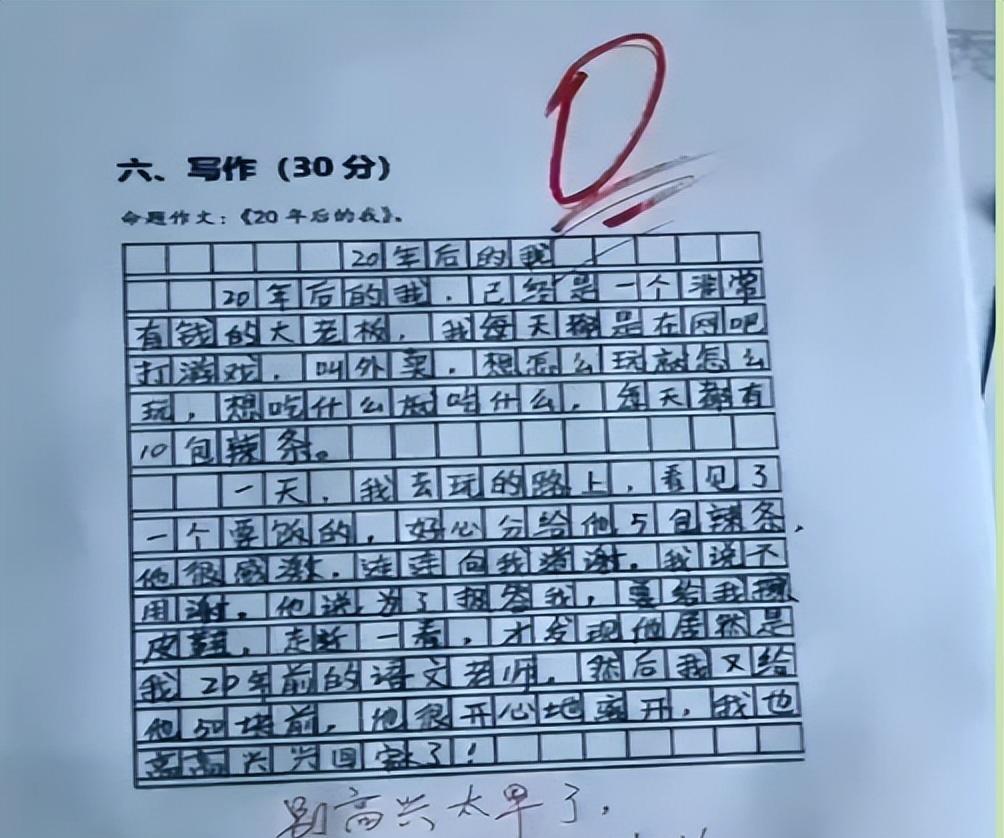 0
六、写作（30分）
命题作文：《20年后的我》。
20年后的我
20年后的我，已经是一个非常
有钱的大老板，我每天都是在网吧
打游戏，叫外卖，想怎么玩就怎么
玩，想吃什么就吃什么，每天都有
10包辣条。
一天，我去玩的路上，看见了
一个要饭的，好心分给他5包辣条，
他很感激，连连向我道谢。我说不
用谢，他说，为了报答我，要给我擦
皮鞋，走近一看，才发现他居然是
我20年前的语文老师。然后我又给
他50块前，他很开心地离开，我也
高高兴兴回家了！
别高兴太早了，